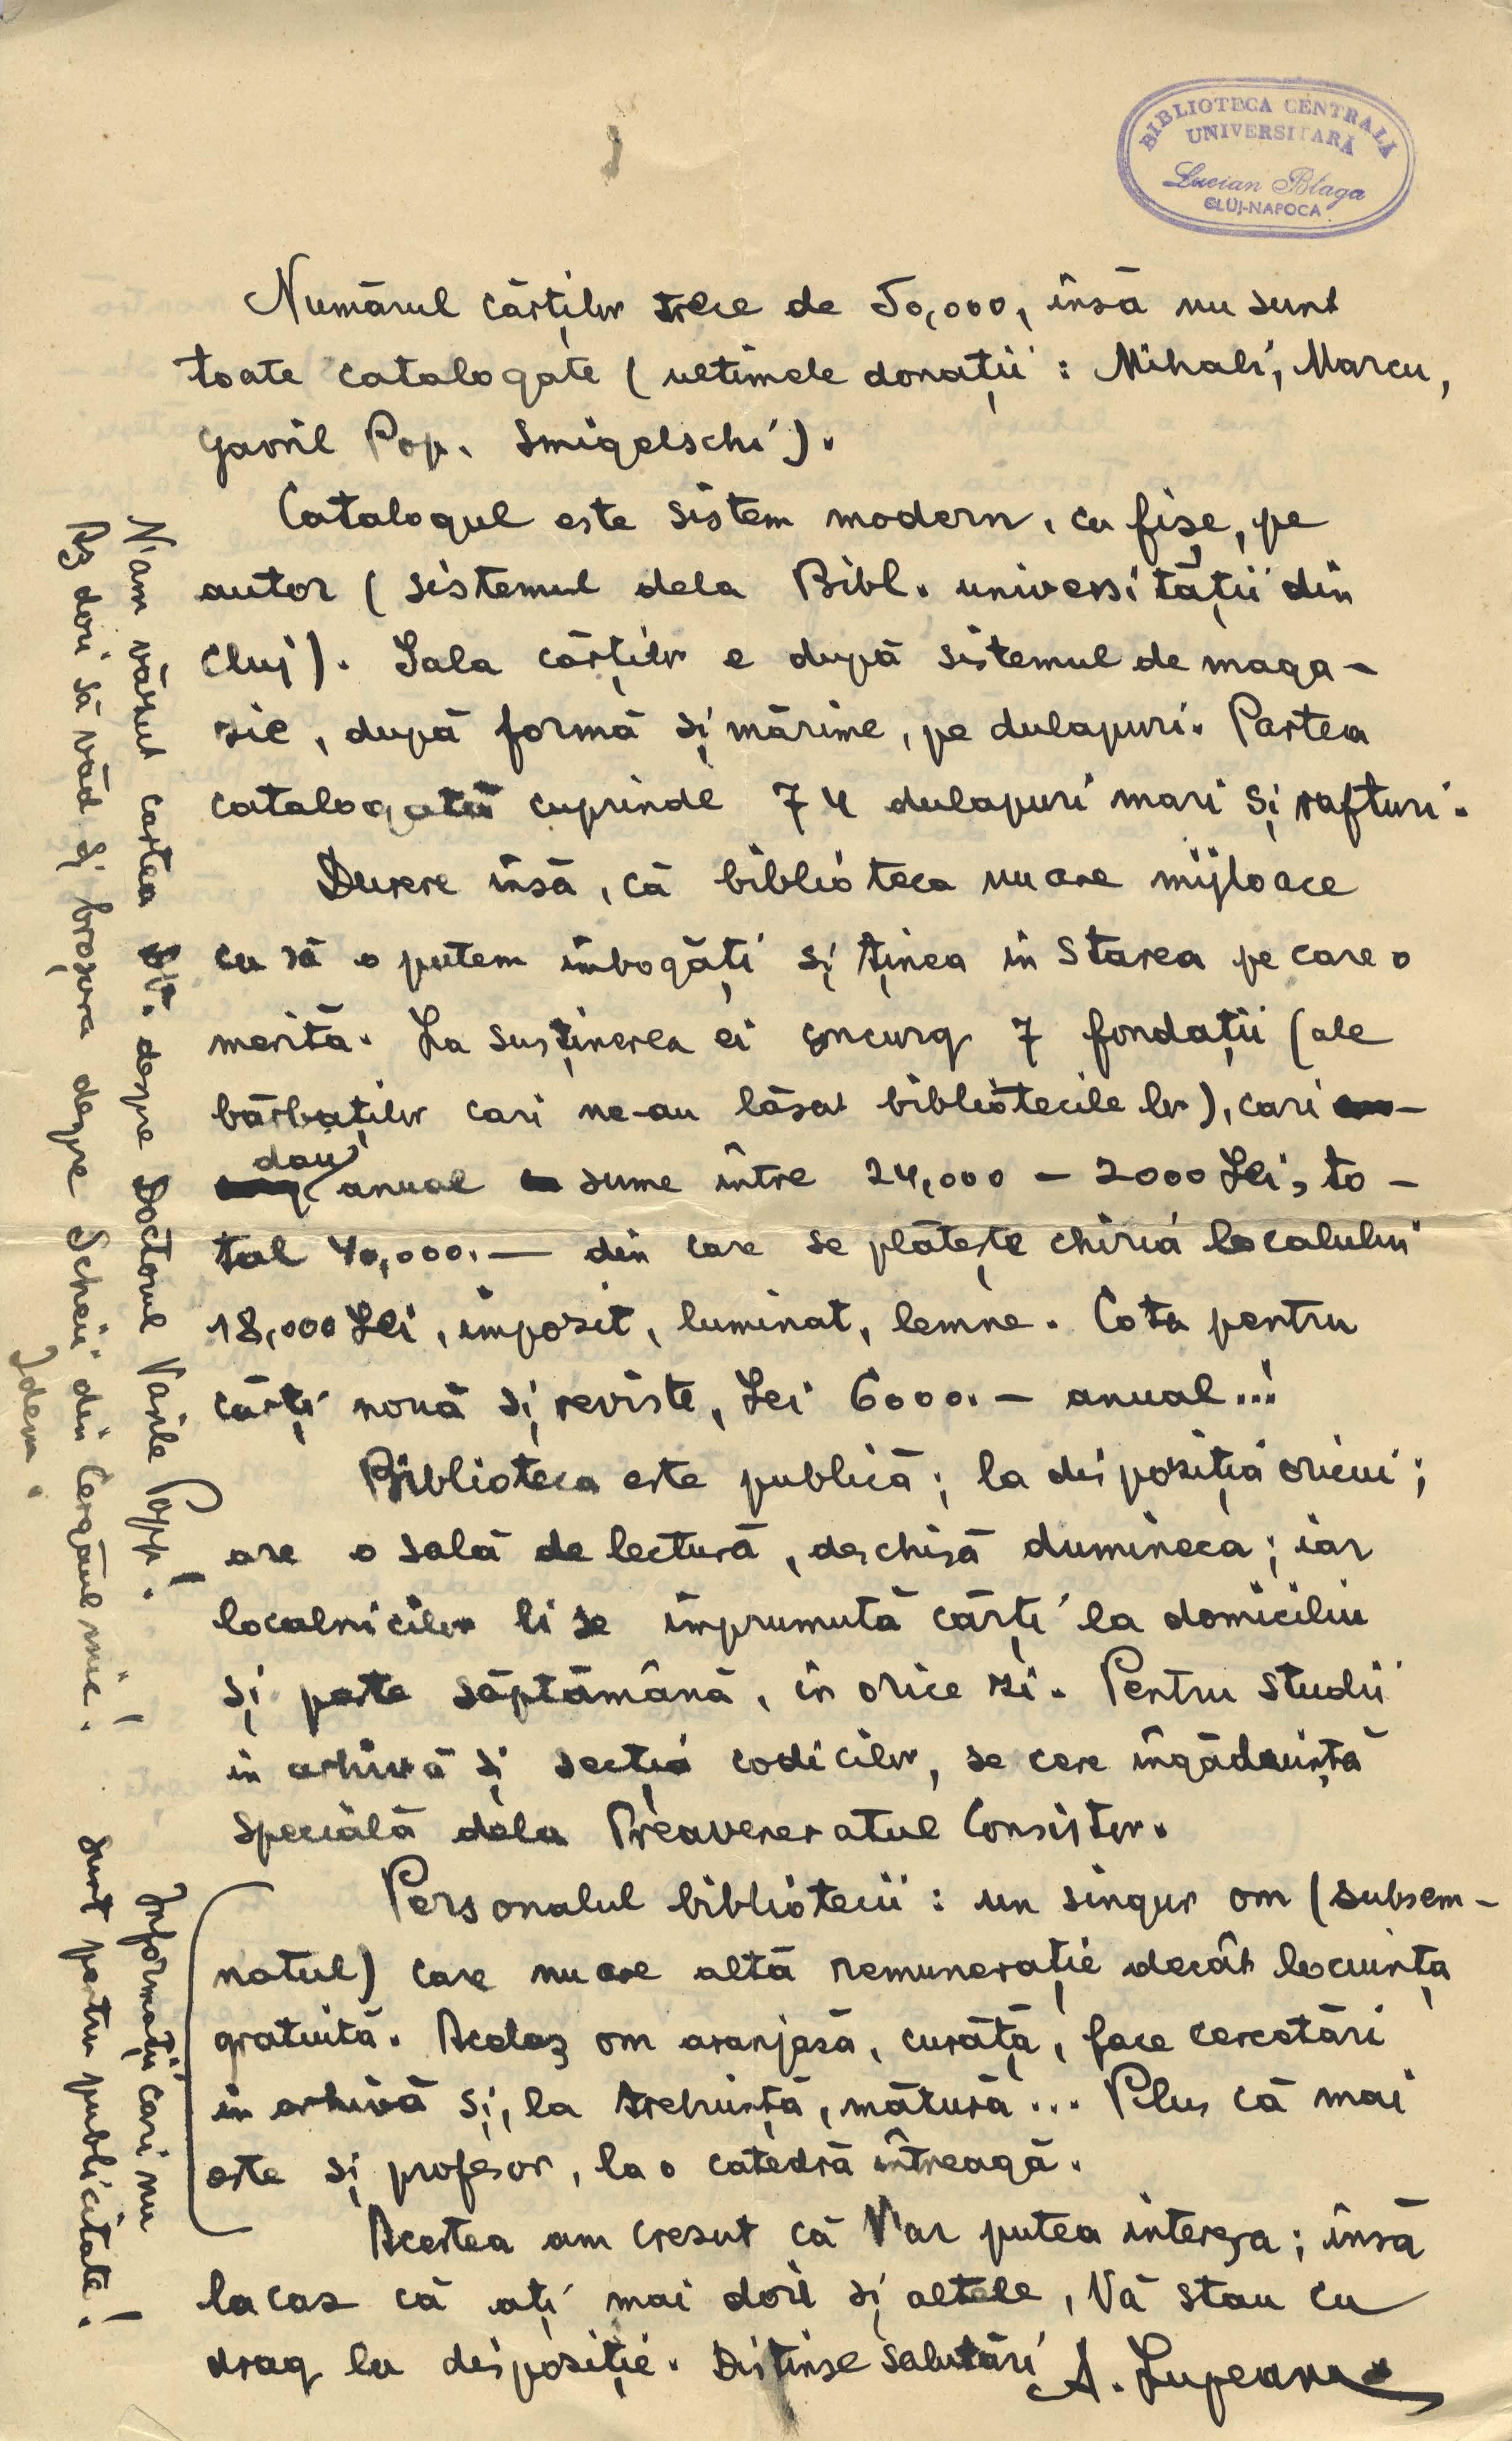 BIBLIOTECA CENTRALĂ
UNIVERSITARĂ
Lucian Blaga
CLUJ-NAPOCA
Numărul cărților trece de 50,000, însă nu sunt
toate catalogate (ultimele donații: Mihali, Marcu,
Gavril Pop, Smigelschi).
Catalogul este sistem modern, cu fișe, pe
autor (sistemul dela Bibl. universității din
Cluj). Sala cărților e după sistemul de maga-
zie, după formă și mărime, pe dulapuri. Partea
catalogată cuprinde 74 dulapuri mari și rafturi.
Durere însă, că biblioteca nu are mijloace
cu să o putem îmbogăți și ținea în starea pe care o
merită. La susținerea ei concurg 7 fondații (ale
bărbaților cari ne-au lăsat bibliotecile lor), cari
dau anual sume între 24,000 – 2000 Lei, to-
tal 40,000.— din care se plătește chiria localului
18,000 Lei, impozit, luminat, lemne. Cota pentru
cărți nouă și reviste, Lei 6000.— anual...!
Biblioteca este publică; la dispoziția oricui;
are o sală de lectură, deschisă dumineca; iar
localnicilor li se împrumută cărți la domiciliu
și peste săptămână, în orice zi. Pentru studii
in arhivă și secția codicilor, se cere îngăduință
specială dela Preaveneratul Consistor.
Personalul bibliotecii: un singur om (subsem-
natul) care nu are altă remunerație decât locuința
gratuită. Acelaș om aranjază, curăță, face cercetări
in arhivă și, la trebuință, mătură... Plus că mai
este și profesor, la o catedră întreagă.
Acestea am crezut că V'ar putea interesa; însă
la caz că ați mai dori și altele, Vă stau cu
drag la dispoziție. Distinse salutări A. Lupeanu
N'am văzut cartea Dv. despre Doctorul Vasile Popp.!
Aș dori să văd și broșura despre Scheii din Cergăul mic.!
Idem.
Informații cari nu
sunt pentru publicitate.!